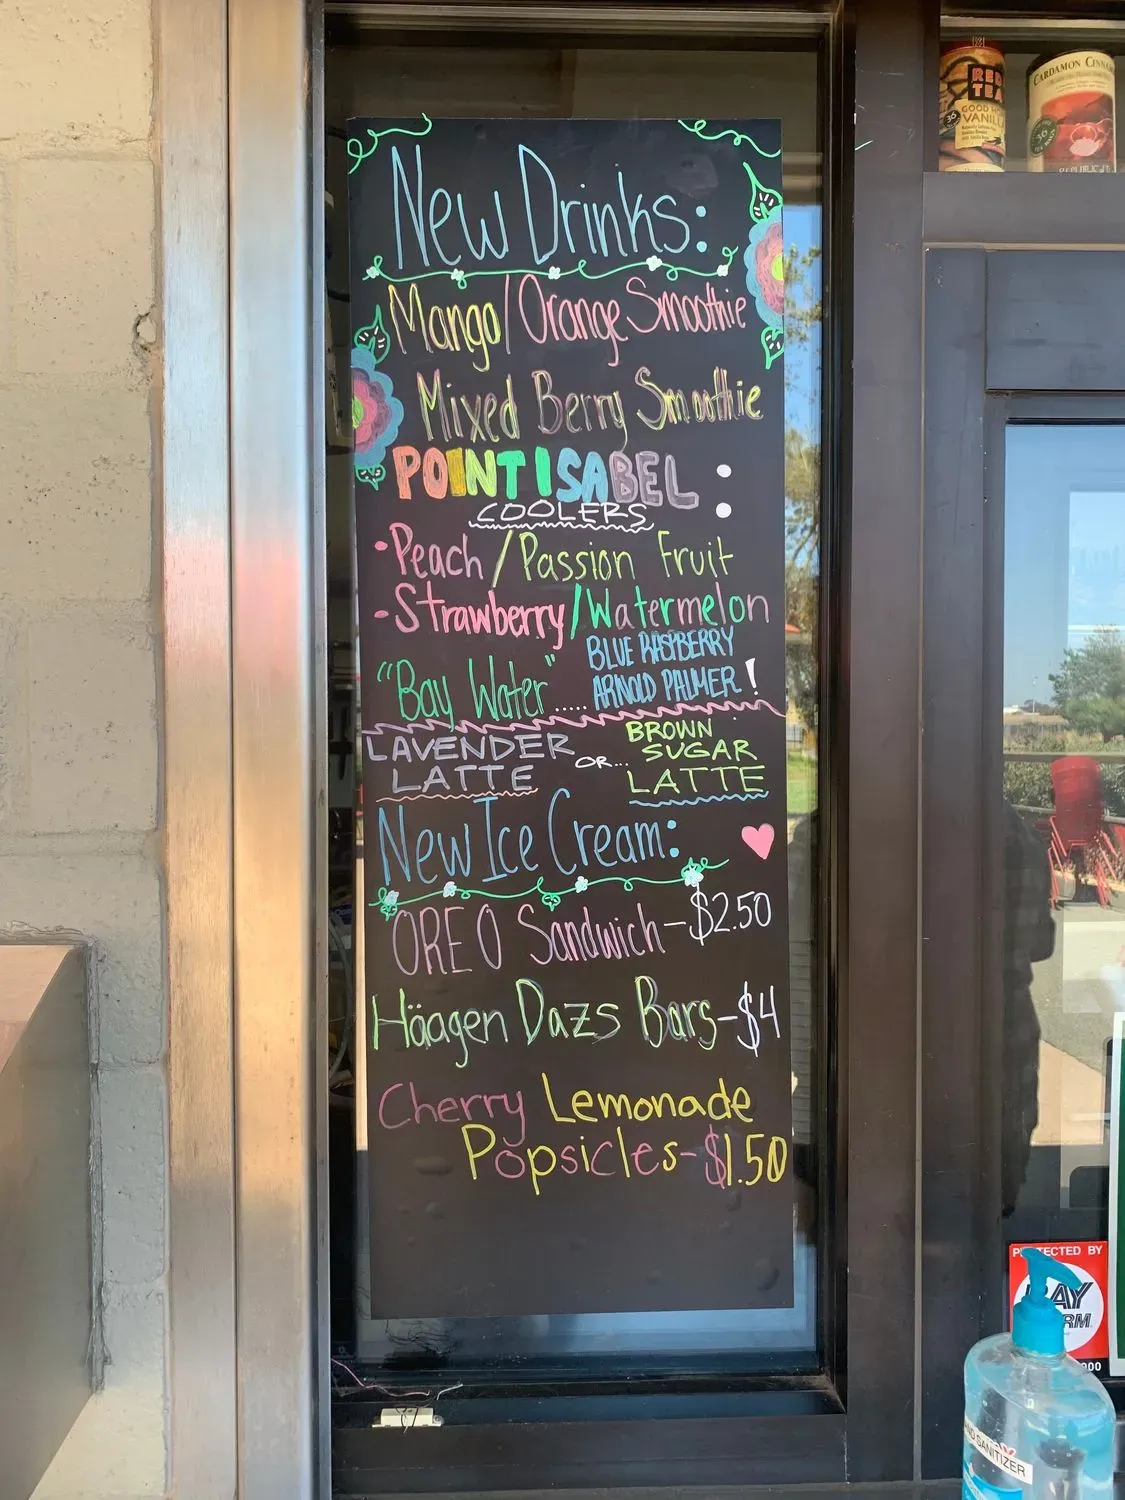 New Drinks:
Mango/Orange Smoothie
Mixed Berry Smoothie
POINT ISABEL:
COOLERS
• Peach/Passion Fruit
- Strawberry/Watermelon
"Bay Water" ..... BLUE RASPBERRY
ARNOLD PALMER!
LAVENDER LATTE
OR...
BROWN SUGAR LATTE
New Ice Cream:
OREO Sandwich-$2.50
Häagen Dazs Bars-$4
Cherry Lemonade
Popsicles-$1.50
RED
TEA
GOOD
VANILLA
CARDAMON
PROTECTED BY
BAY
SANITIZER